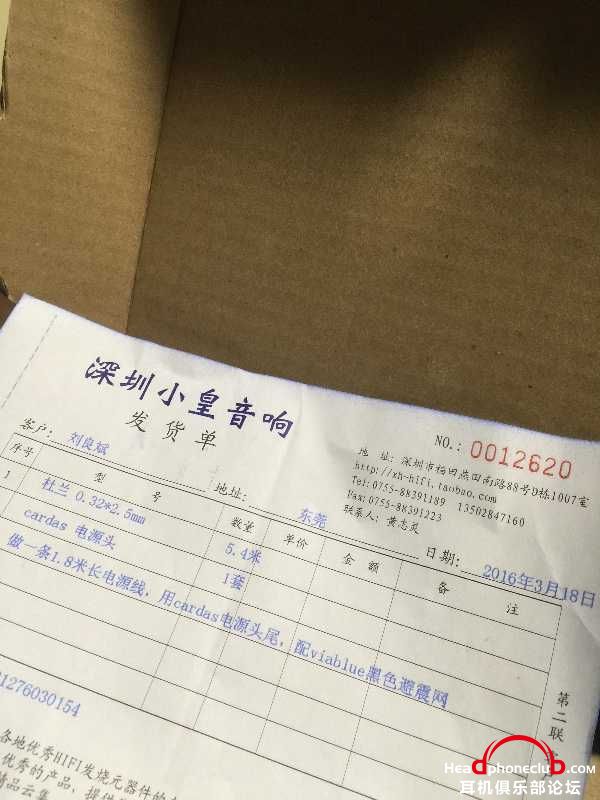 深圳小皇音响
发货单
NO.: 0012620
地 址: 深圳市福田燕田南路88号D栋1007室
http://xh-hifi.taobao.com
Tel:0755-88391189 13502847160
Fax:0755-88391223
联系人: 黄志灵
客户: 刘良斌 地址: 东莞 日期: 2016年3月18日
序号 型 号 数量 单价 金 额 备 注
1 杜兰 0.32*2.5mm 5.4米
cardas 电源头 1套
做一条1.8米长电源线, 用cardas电源头尾, 配viablue黑色避震网
1276030154
第二联
各地优秀HIFI发烧元器件的
优秀的产品, 提供
精品云集
Headphoneclub.com
耳机俱乐部论坛